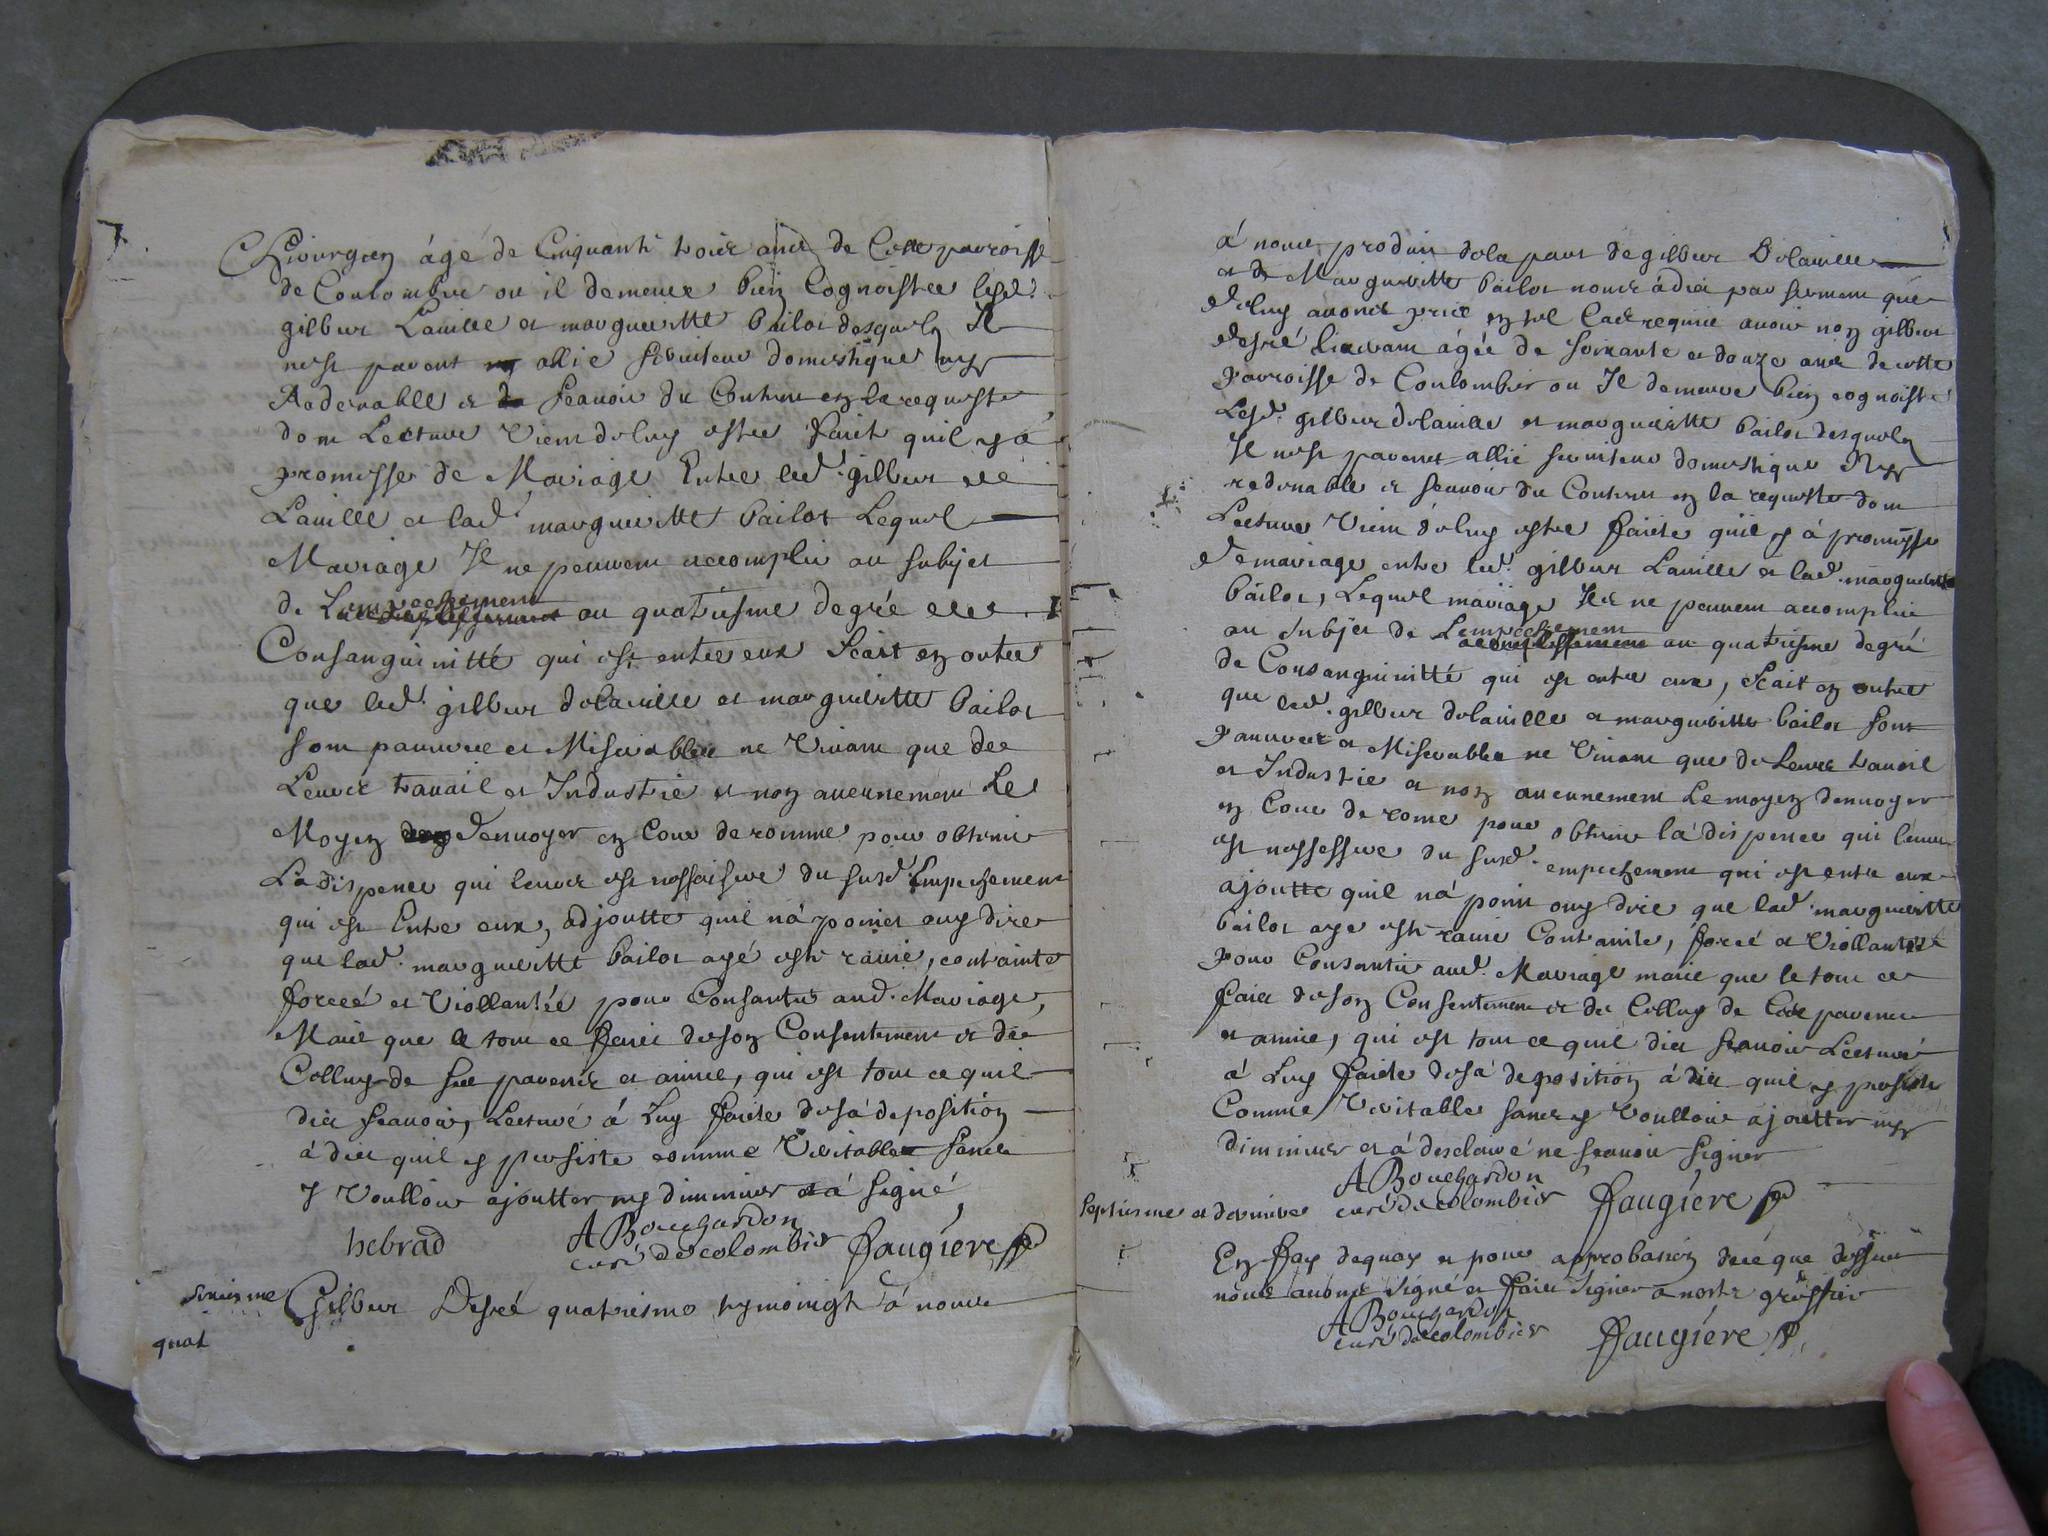 7.
Chirurgien ágé de Cinquante troies ans de Cette parroisse
de Coulombier ou il demeure bien Cognoistre lesd.
gilbert Lauille et margueritte bailot desquels Il
nest parent ny allié seruiteur domestique ny
Redeuable et Scauoir du Contenu en la requeste
dont Lecture Vient deluy estre faict quil y á
promesse de Mariage Entre led. gilbert de
Lauille et lad. margueritte bailot Lequel
Mariage Il ne peuuent accomplir au subjet
de Lempechement au quatriesme degrée de
Consanguinitté qui est entre eux Scait en outre
que led. gilbert delauille et marguerite bailot
sont pauures et Miserables ne Viuant que de
Leurs trauail et Industrie et non aucunement Le
Moyen denuoyer en Cour de romme pour obtenir
La dispence qui leurs est nessaisere du susd. Empechement
qui est Entre eux, adjoutte quil ná point ouy dire
que lad. margueritte bailot ayé esté rauie, contrainte
forceé et Viollantée pour Consantir aud. Mariage,
Mais que le tout ce faict deson Consentement et de
Celluy de ses parents et amies, qui est tout ce quil
dict scauoir, Lecturé á Luy faicte desá deposition
á dict quil y persiste comme Veritable sans
y Voulloir ajoutter ny diminuer et á signé,
hebrad
A Bouchardon
curé de colombier
faugiere
sixiesme Gilbert Desré quatriesme tesmoingt á nous
quat
á nous produit dela part de gilbert Delauille
et de Margueritte bailot nous á dict par serment que
deluy auons prise en tel Cas requise auoir non gilbert
desré ágée de soixante et douze ans de cette
parroisse de Coulombier ou Il demeure bien cognoistre
Lesd. gilbert delauille et marguerittte bailot desquels
Il nest parent allié seruiteur domestique Ny
redeuable et scauoir du Contenu en la requeste dont
Lecture Vient deluy estre faicte quil y á promesse
de mariage entre led. gilbert Lauille et lad. marguerite
bailot, Lequel mariage Ils ne peuuent accomplir
au subjet de Lempechement au quatriesme degré
de Consanguinitté qui est entre eux, Scait en outre
que led. gilbert delauille et marguerite bailot sont
pauures et Miserables ne Viuant que de Leurs trauail
et Industrie et non aucunement Le moyen denuoyer
en Cour de rome pour obtenir lá dispence qui leurs
est nessessere du susd. empechement qui est entre eux
ajoutte quil ná point ouy dire que lad. marguerite
bailot aye esté rauie Contrainte, forcé et Viollantée
pour Consantir aud. Mariage mais que le tout ce
faict deson Consentement et de Celluy de Ces parents
et amies, qui est tout ce quil dict scauoir Lecturé
á Luy faicte desá deposition á dict quil y persiste
Comme Veritable sans y Voulloir ajoutter ny
diminuer et á desclairé ne scauoir signer
A Bouchardon
curé de colombier faugiere
septiesme et derniere
En foy dequoy et pour approbation de ce que dessus
nous auons signé et faict signer a nostre greffier
A Bouchardon
curé de colombier
faugiere